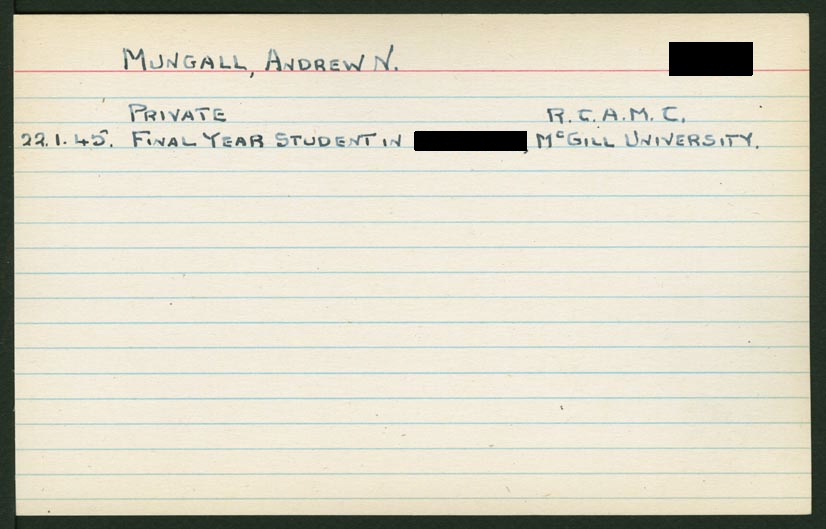 MUNGALL, ANDREW N.
PRIVATE R.C.A.M.C.
22.1.45. FINAL YEAR STUDENT IN , McGILL UNIVERSITY.